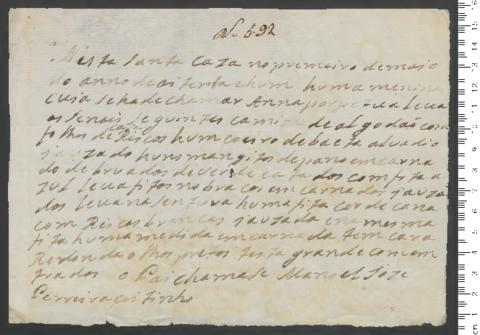 N. 592
Nesta Santa Caza no primeiro de maio
do anno de oitenta e hum huma menina
cuja se ha de chamar Anna por petua leua
os senais seguintes camiza de algodaõ com
folhos de casa Riscos hum coeiro de baeta aluadio
ja uzado huns mangitos de pano emcarna
do de bruados de verde atados com fita a
zul leua fitos no braco emcarnados ja uza
dos leua na sentura huma fita cor de cana
com Riscos brancos ja uzada e na mesma
fita huma medida emcarnada tem cara
Redonda olhos pretos testa grande com em
tradas o Pai chamase Manoel Joze
Ferreira coitinho